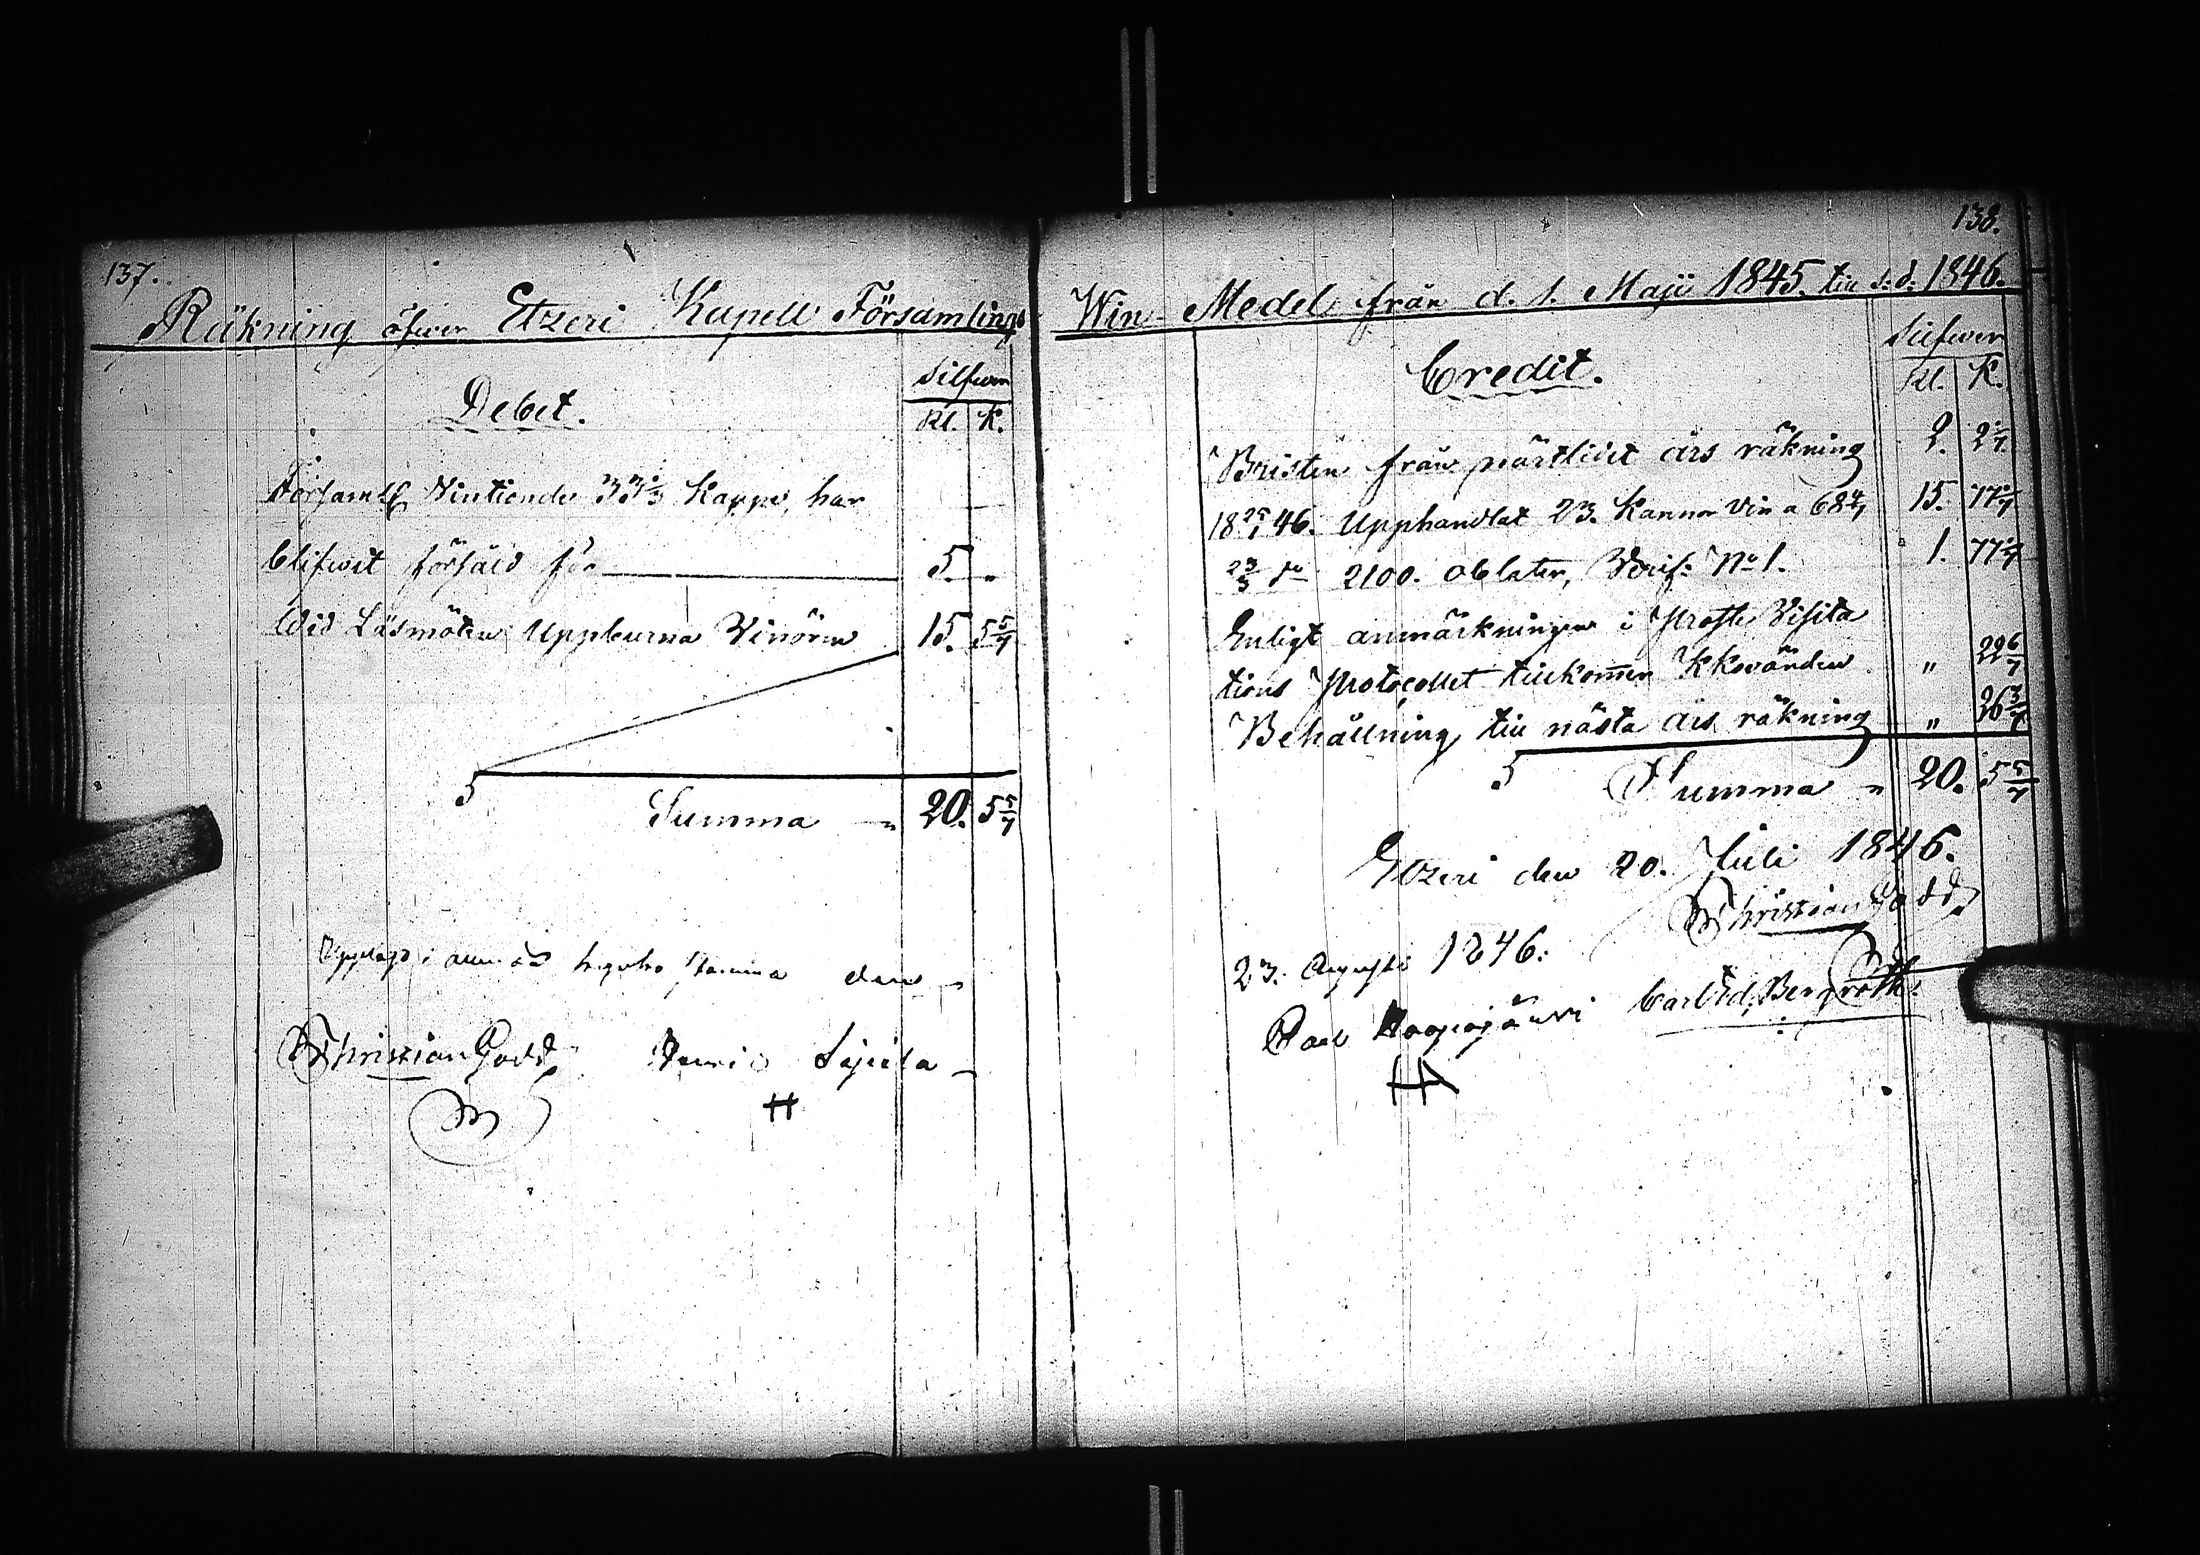 137.
Räkning öfwer Etzeri Kapell Församlings
Debet.
Silfwer
Rl. K.
Församls Vintionde 33 1/3 Kappe, har
blifwit försåld för 5. „
Wid Läsmöten Uppburna Vinören 15. 5 5/7
Summa „ 20. 5 5/7
Upplagd i stämma den
Christian Godd
138.
Win Medel från d. 1. Maji 1845. till s. d. 1846.
Credit.
Silfwer
Rl. K.
Bristen från näritlidet års räkning 2. 2 2/7
18 25/1 46. Upphandlat 23. Kannor Vin a 68 4/7 15. 77 1/7
2100. oblater, Verif: No 1. 1. 77 1/7
Enligt anmärkningen i Prosts Visita
tions Protocollet tillkommer Kkovärden „ 22 6/7
Behållning till nästa års räkning „ 26 3/7
Summa „ 20. 5 5/7
Etzeri den 20. Juli 1846.
Christian Godd
23. Augusti 1846.
Carl Ed. Bergroth.